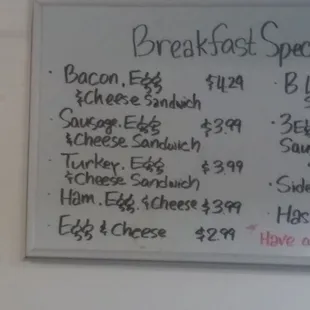 Breakfast Spec
· Bacon, Egg $4.29
& Cheese Sandwich
· Sausage, Egg $3.99
& Cheese Sandwich
· Turkey, Egg $3.99
& Cheese Sandwich
· Ham, Egg, & Cheese $3.99
· Egg & Cheese $2.99
· B L
· 3 E
Sau
· Side
· Has
* Have a